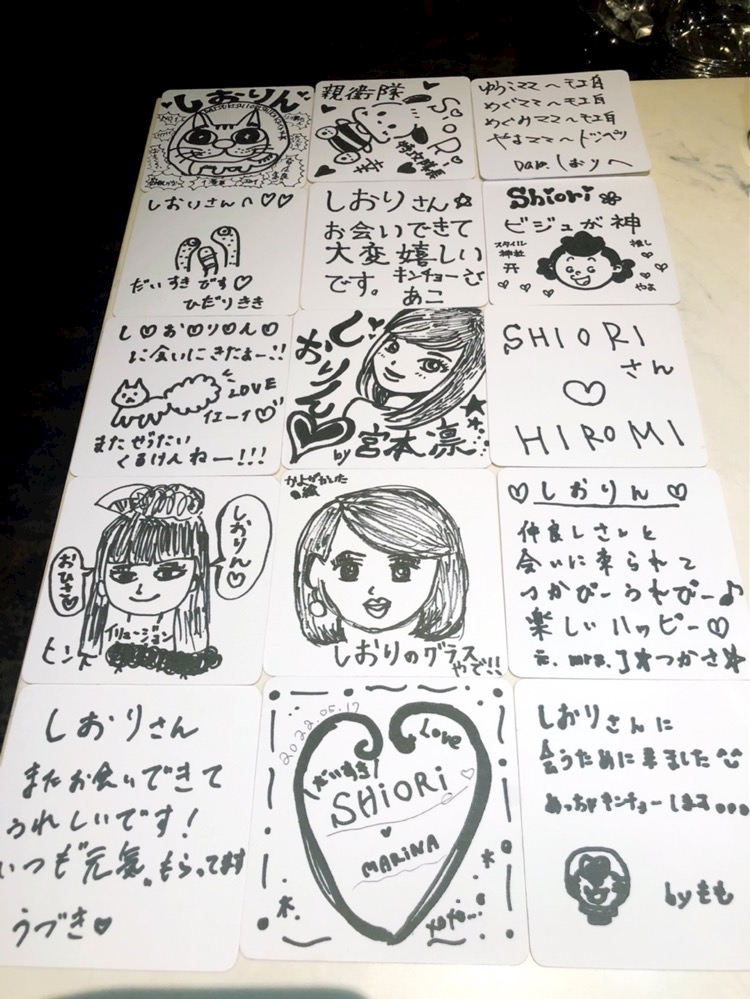 しおりん
親衛隊
SiORi
幸
ゆうこママ〜モエ自
めぐママ〜モエ自
めぐみママ〜モエ自
やまママ〜ドンペリ
しおりへ
しおりさんへ♡♡
だいすきです♡
ひだりきき
しおりさん☆
お会いできて
大変嬉しい
です。キンチョー
あこ
Shiori
ビジュが神
スタイル
神社
推し
やよ
し♡お♡り♡ん♡
お会いにきたよー!!
LOVE
イエーイ♡
またぜったい
くるけんねー!!!
しおりん
by宮本凛
SHIORI
さん
♡
HIROMI
しおりん♡
おひさ♡
イリュージョン
ヒント
かよがかいた
しおりのグラス
やで!!
♡しおりん♡
仲良しさんと
会いに来られて
つかぴーうれぴー♪
楽しいハッピー♡
元. mrs. J★つかさ
しおりさん
またお会いできて
うれしいです!
いつも"元気"もらってます
うづき♥
2022.05.17
Love
だいすき
SHiORi
♥
MARiNA
xoxo...
しおりさんに
会うために来ました
めっちゃキンチョーします...
byもも